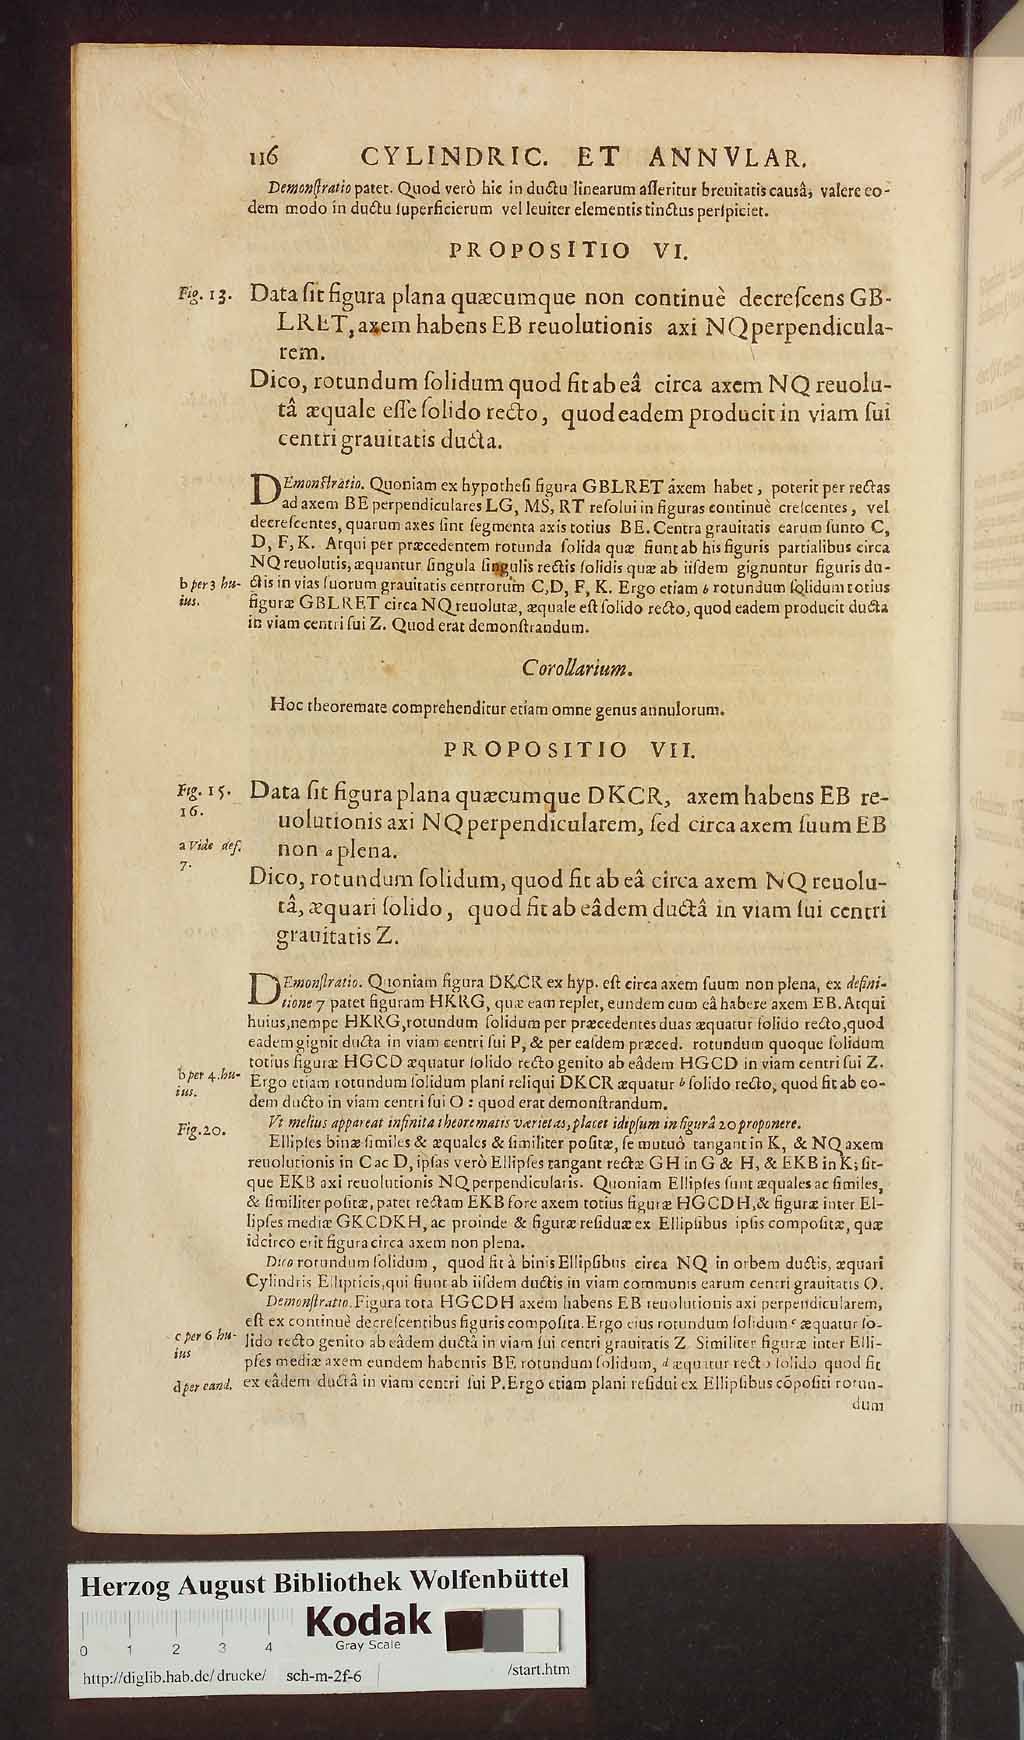 116 CYLINDRIC. ET ANNVLAR.
Demonſtratio patet. Quod verò hic in ductu linearum aſſeritur breuitatis causâ, valere eo-
dem modo in ductu ſuperficierum vel leuiter elementis tinctus perſpiciet.
PROPOSITIO VI.
Fig. 13. Data ſit figura plana quæcumque non continuè decreſcens GB-
LRET, axem habens EB reuolutionis axi NQ perpendicula-
rem.
Dico, rotundum ſolidum quod fit ab eâ circa axem NQ reuolu-
tâ æquale eſſe ſolido recto, quod eadem producit in viam ſui
centri grauitatis ducta.
DEmonſtratio. Quoniam ex hypotheſi figura GBLRET axem habet, poterit per rectas
ad axem BE perpendiculares LG, MS, RT reſolui in figuras continuè creſcentes, vel
decreſcentes, quarum axes ſint ſegmenta axis totius BE. Centra grauitatis earum ſunto C,
D, F, K. Atqui per præcedentem rotunda ſolida quæ fiunt ab his figuris partialibus circa
NQ reuolutis, æquantur ſingula ſingulis rectis ſolidis quæ ab iiſdem gignuntur figuris du-
b per 3 hu- ctis in vias ſuorum grauitatis centrorum C, D, F, K. Ergo etiam b rotundum ſolidum totius
ius. figuræ GBLRET circa NQ reuolutæ, æquale eſt ſolido recto, quod eadem producit ducta
in viam centri ſui Z. Quod erat demonſtrandum.
Corollarium.
Hoc theoremate comprehenditur etiam omne genus annulorum.
PROPOSITIO VII.
Fig. 15. Data ſit figura plana quæcumque DKCR, axem habens EB re-
16. uolutionis axi NQ perpendicularem, ſed circa axem ſuum EB
a Vide def. non a plena.
7.
Dico, rotundum ſolidum, quod fit ab eâ circa axem NQ reuolu-
tâ, æquari ſolido, quod fit ab eâdem ductâ in viam ſui centri
grauitatis Z.
DEmonſtratio. Quoniam figura DKCR ex hyp. eſt circa axem ſuum non plena, ex defini-
tione 7 patet figuram HKRG, quæ eam replet, eundem cum eâ habere axem EB. Atqui
huius, nempe HKRG, rotundum ſolidum per præcedentes duas æquatur ſolido recto, quod
eadem gignit ducta in viam centri ſui P, & per eaſdem præced. rotundum quoque ſolidum
totius figuræ HGCD æquatur ſolido recto genito ab eâdem HGCD in viam centri ſui Z.
b per 4. hu- Ergo etiam rotundum ſolidum plani reliqui DKCR æquatur b ſolido recto, quod fit ab eo-
ius. dem ducto in viam centri ſui O: quod erat demonſtrandum.
Fig. 20. Vt melius appareat infinita theorematis varietas, placet idipſum in figurâ 20 proponere.
Ellipſes binæ ſimiles & æquales & ſimiliter poſitæ, ſe mutuò tangant in K, & NQ axem
reuolutionis in C ac D, ipſas verò Ellipſes tangant rectæ GH in G & H, & EKB in K; ſit-
que EKB axi reuolutionis NQ perpendicularis. Quoniam Ellipſes ſunt æquales ac ſimiles,
& ſimiliter poſitæ, patet rectam EKB fore axem totius figuræ HGCDH, & figuræ inter El-
lipſes mediæ GKCDKH, ac proinde & figuræ reſiduæ ex Ellipſibus ipſis compoſitæ, quæ
idcirco erit figura circa axem non plena.
Dico rotundum ſolidum, quod fit à binis Ellipſibus circa NQ in orbem ductis, æquari
Cylindris Ellipticis, qui fiunt ab iiſdem ductis in viam communis earum centri grauitatis O.
Demonſtratio. Figura tota HGCDH axem habens EB reuolutionis axi perpendicularem,
eſt ex continuè decreſcentibus figuris compoſita. Ergo eius rotundum ſolidum c æquatur ſo-
c per 6 hu- lido recto genito ab eâdem ductâ in viam ſui centri grauitatis Z. Similiter figuræ inter Elli-
ius pſes mediæ axem eundem habentis BE rotundum ſolidum, d æquatur recto ſolido quod fit
d per eand. ex eâdem ductâ in viam centri ſui P. Ergo etiam plani reſidui ex Ellipſibus cõpoſiti rotun-
dum
Herzog August Bibliothek Wolfenbüttel
Kodak
Gray Scale
0 1 2 3 4
http://diglib.hab.de/drucke/ sch-m-2f-6 /start.htm